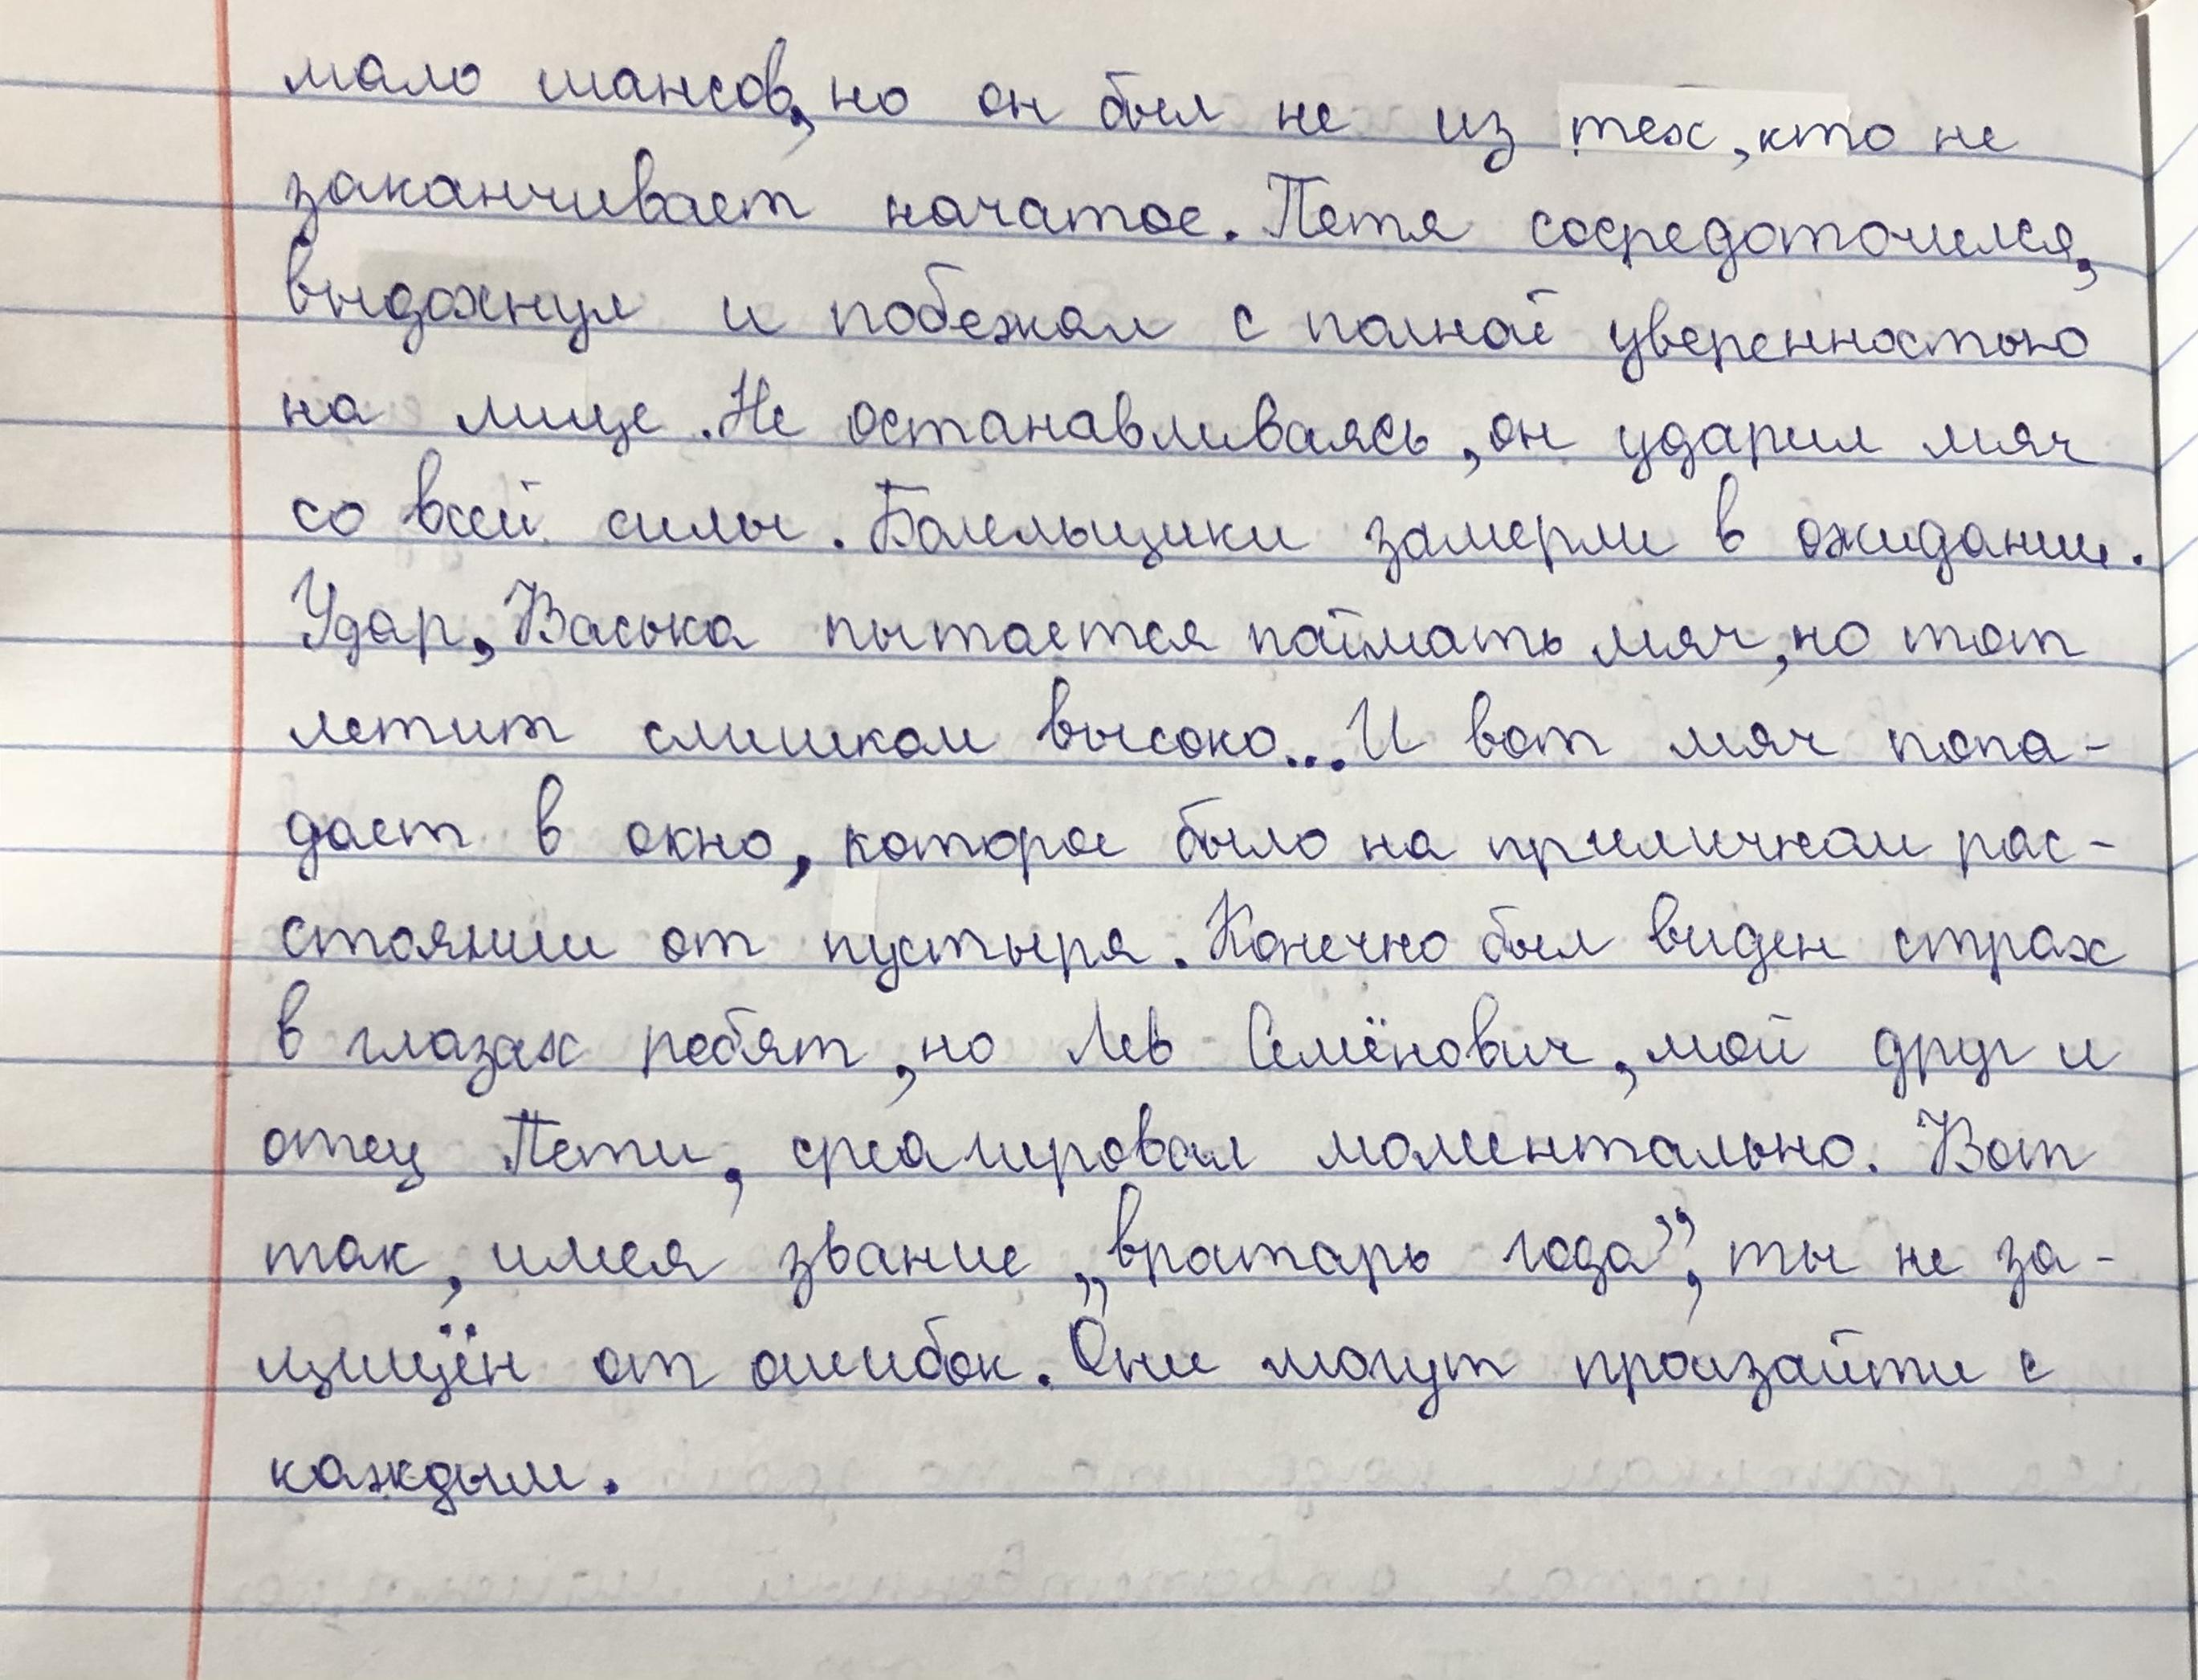 мало шансов, но он был не из тех, кто не
заканчивает начатое. Петя сосредоточился,
выдохнул и побежал с полной уверенностью
на лице. Не останавливаясь, он ударил мяч
со всей силы. Болельщики замерли в ожидании.
Удар, Васька пытается поймать мяч, но тот
летит слишком высоко... И вот мяч попа-
дает в окно, которое было на приличном рас-
стоянии от пустыря. Конечно был виден страх
в глазах ребят, но Лев Семёнович, мой друг и
отец Пети, среагировал моментально. Вот
так, имея звание „вратарь года”, ты не за-
щищён от ошибок. Они могут произайти с
каждым.